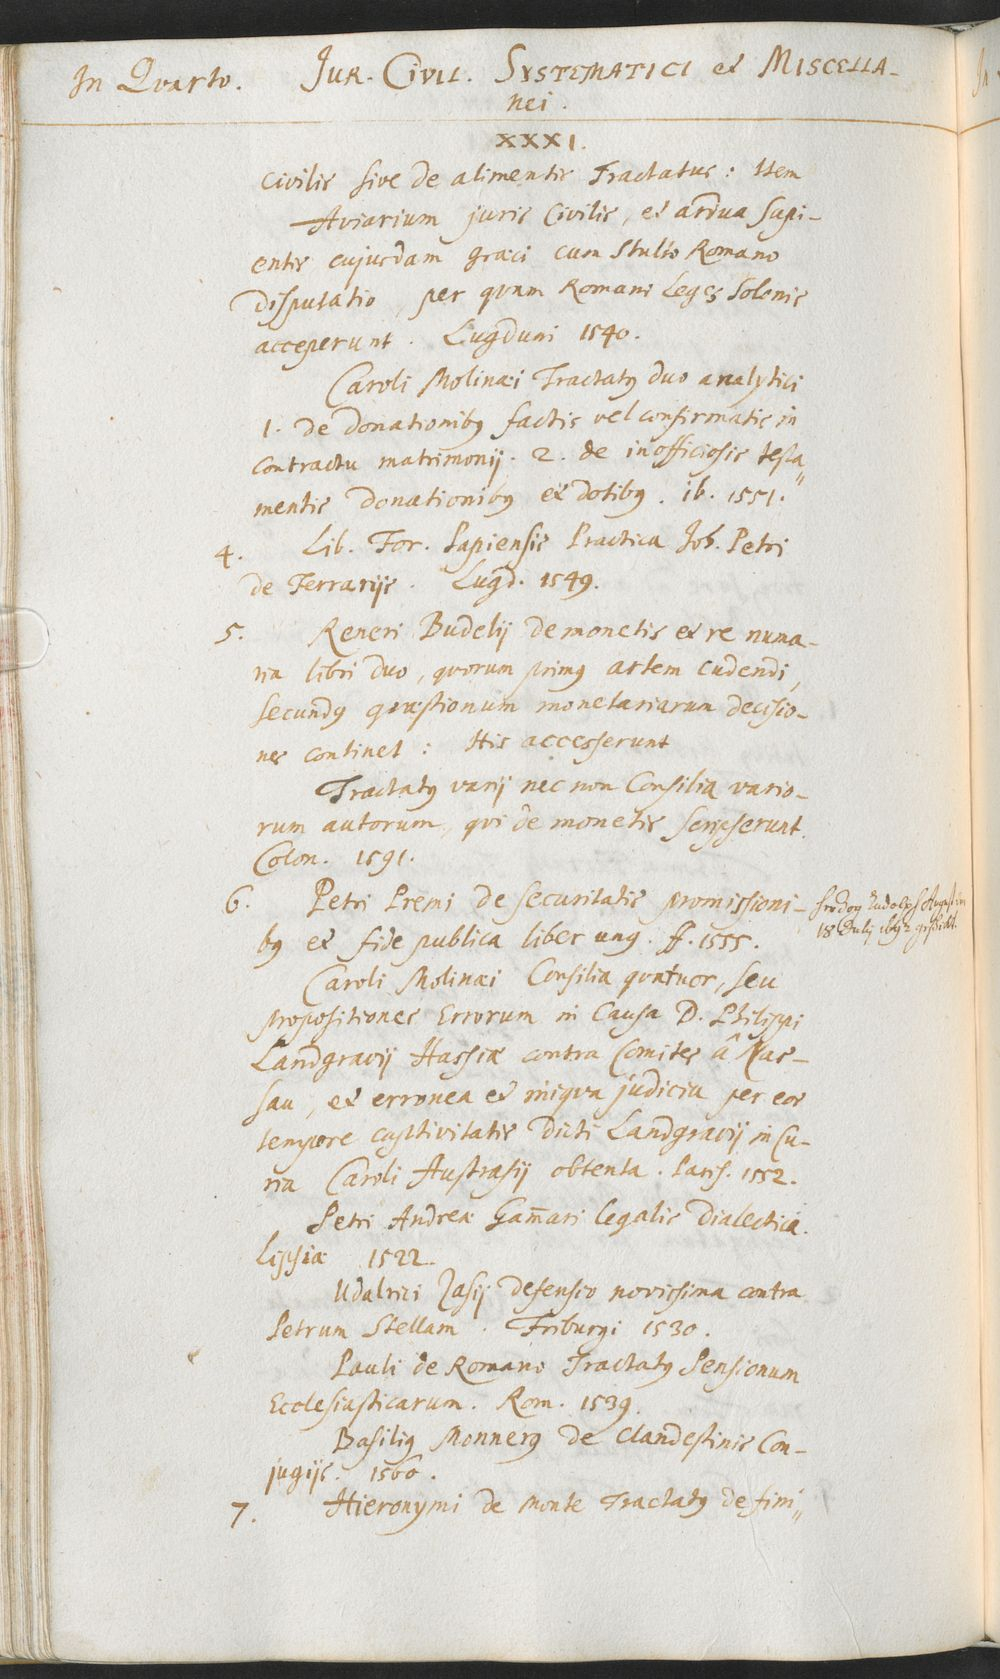 In Quarto. JUR. CIVIL. SYSTEMATICI et MISCELLA-
nei.
XXXI.
civilis sive de alimentis Tractatus: Item
Aviarium juris Civilis, et ardua sapi-
entis cujusdam graeci cum stulto Romano
disputatio, per quam Romani Leges Solonis
acceperunt. Lugduni 1540.
Caroli Molinaei Tractatq duo analytici
1. de donationibq factis vel confirmatis in
contractu matrimonij. 2. de inofficiosis testa„
mentis donationibq et dotibq. ib. 1551.
4. Lib. For. Papiensis Practica Joh. Petri
de Ferrarijs. Lugd. 1549.
5. Reneri Budelij de monetis et re numa-
ria libri duo, quorum primq artem cudendi,
secundq quaestionum monetariarum decisio-
nes continet: His accesserunt
Tractatq varij nec non Consilia vario-
rum autorum, qui de monetis scripserunt.
Colon. 1591.
6. Petri Premi de securitatis promissioni-
bq et fide publica liber unq. ff. 1555.
18 Julij 1692
Caroli Molinaei Consilia quatuor, seu
propositiones Errorum in Causa D. Philippi
Landgravij Hassiae contra Comites â Nas-
sau, et erronea et iniqua judicia per eos
tempore captivitatis dicti Landgravij in Cu-
ria Caroli Austrasij obtenta. Paris. 1552.
Petri Andreae Gam̄ari legalis dialectica.
Lipsiae 1522.
Udalrici Zasij defensio novissima contra
Petrum Stellam. Friburgi 1530.
Pauli de Romano Tractatq Pensionum
Ecclesiasticarum. Rom. 1539.
Basiliq Monnerq de clandestinis Con-
jugijs. 1566.
7. Hieronymi de Monte Tractatq de fini„